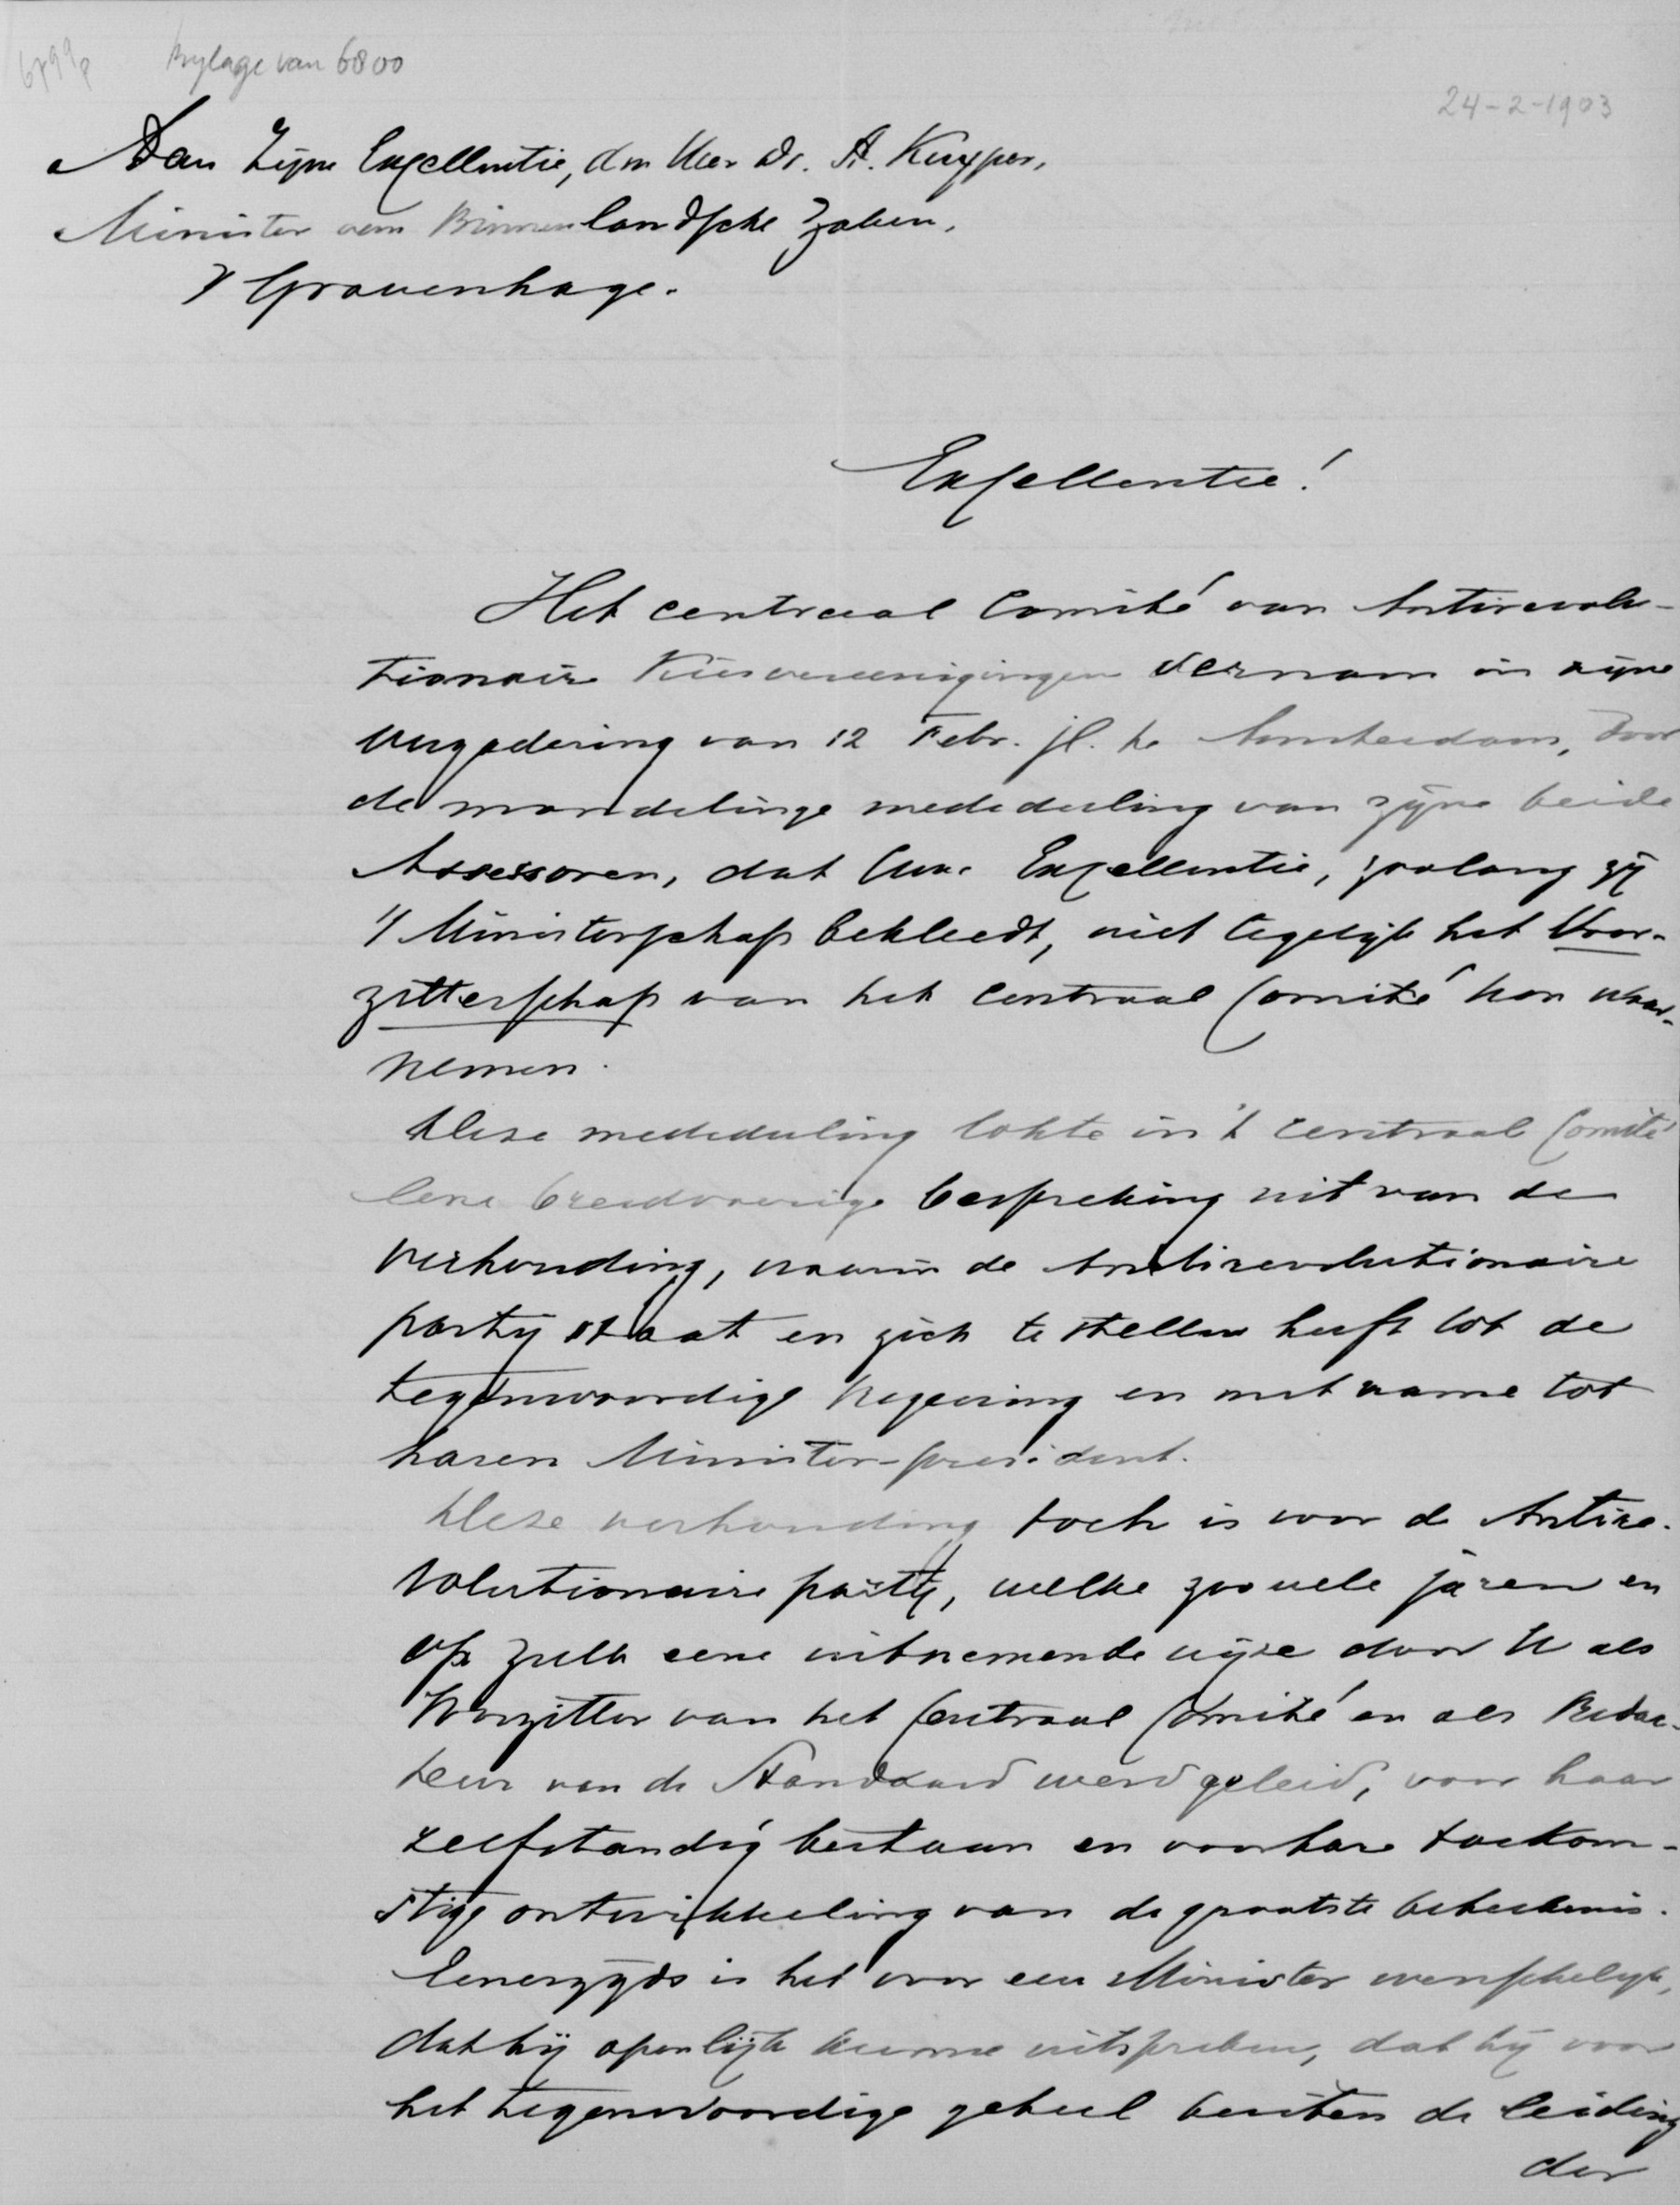 bylage van 6800
24-2-1903
Aan Zijne Excellentie, den Heer Dr. A. Kuyper,
Minister van Binnenlandsche Zaken,
's Gravenhage.
Excellentie!
Het centraal Comité van Antirevolu-
tionaire Kiesvereenigingen vernam in zijne
vergadering van 12 Febr. jl. te Amsterdam, door
de mondelinge mededeeling van zijne beide
Assessoren, dat Uwe Excellentie, zoolang zij
't Ministerschap bekleedt, niet tegelijk het Voor-
zitterschap van het Centraal Comité kon waar-
nemen.
Deze mededeeling lokte in 't Centraal Comité
eene breedvoerige bespreking uit van de
verhouding, waarin de Antirevolutionaire
partij staat en zich te stellen heeft tot de
tegenwoordige Regeering en met name tot
haren Minister-president.
Deze verhouding toch is voor de Antire-
volutionaire partij, welke zoovele jaren en
op zulk eene uitnemende wijze door U als
Voorzitter van het Centraal Comité en als Redac-
teur van de Standaard werd geleid, voor haar
zelfstandig bestaan en voor hare toekom-
stige ontwikkeling van de grootste beteekenis.
Eenerzijds is het voor een Minister wenschelijk,
dat hij openlijk kunne uitspreken, dat hij voor
het tegenwoordige geheel buiten de leiding
der